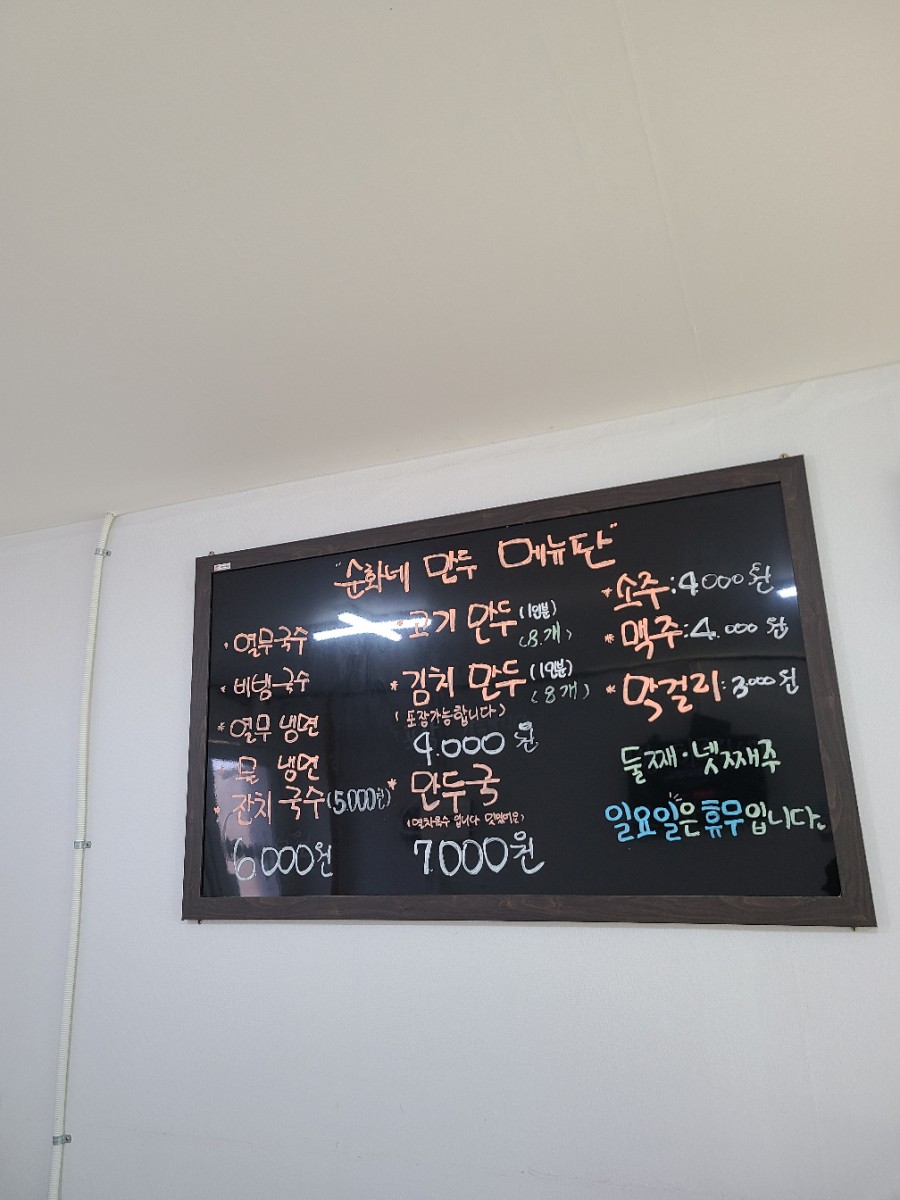 "순화네 만두 메뉴판"
· 열무국수
* 비빔국수
* 열무 냉면
* 물 냉면
* 잔치 국수 (5,000원)
6,000원
* 고기 만두 (1인분)
(8개)
* 김치 만두 (1인분)
(8개)
(포장가능합니다)
4.000원
* 만두국
입니다
7.000원
* 소주: 4000원
* 맥주: 4.000원
* 막걸리: 3000원
둘째·넷째주
일요일은 휴무입니다.